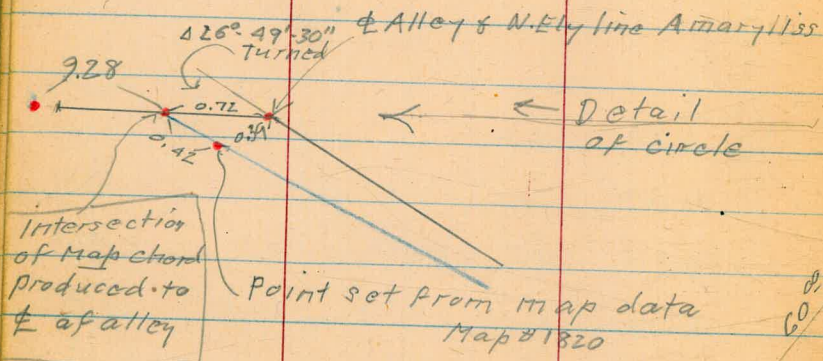 Δ26°-49'-30"
Turned
℄ Alley & N.Ely line Amarylliss
9.28
0.72
0.42
← Detail
of circle
Intersection
of Map chord
produced to
℄ of alley
Point set from map data
Map #1820